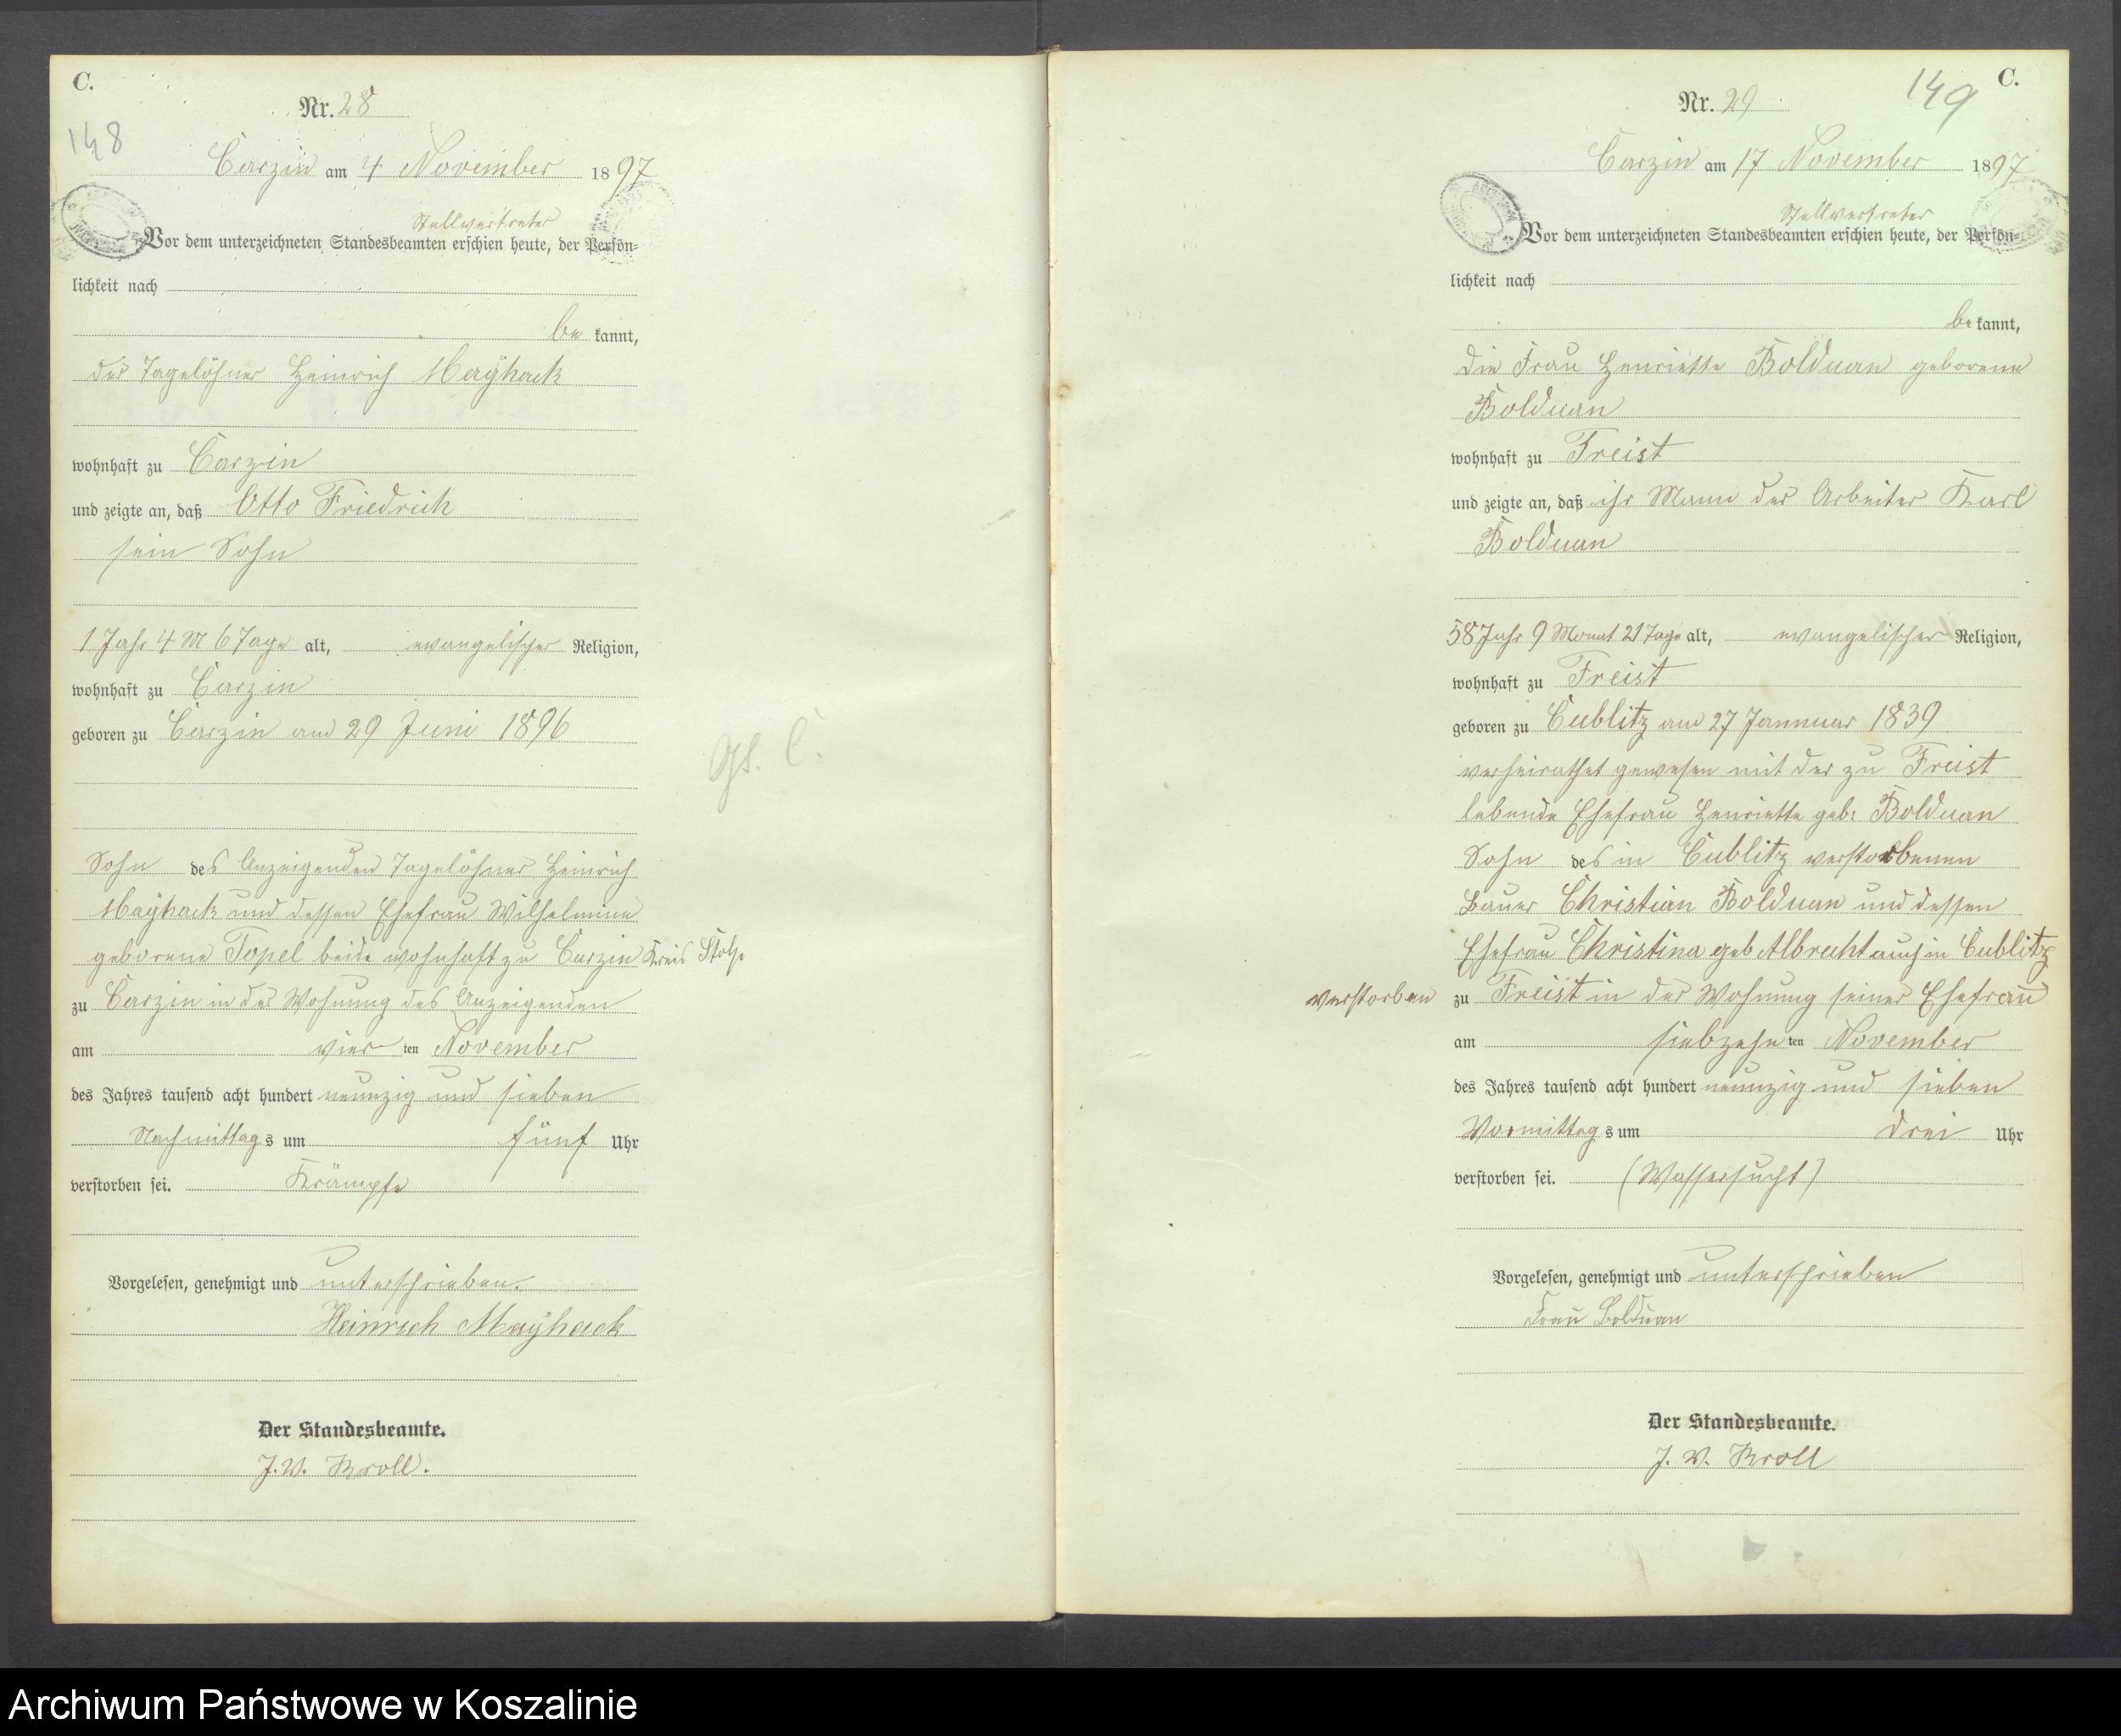 C.
Nr. 28
148
Carzin am 4 November 1897
Stellvertreter
Vor dem unterzeichneten Standesbeamten erschien heute, der Persön-
lichkeit nach
be kannt,
der Tagelöhner Heinrich Mayhack
wohnhaft zu Carzin
und zeigte an, daß Otto Friedrich
sein Sohn
1 Jahr 4 M 6 Tage alt, evangelischer Religion,
wohnhaft zu Carzin
geboren zu Carzin am 29 Juni 1896
Sohn des Anzeigenden Tagelöhner Heinrich
Mayhack und dessen Ehefrau Wilhelmine
geborene Topel beide wohnhaft zu Carzin Kreis Stolp
zu Carzin in der Wohnung des Anzeigenden
am vier ten November
des Jahres tausend acht hundert neunzig und sieben
Nachmittag s um fünf Uhr
verstorben sei. Krämpfe
Vorgelesen, genehmigt und unterschrieben.
Heinrich Mayhack
Der Standesbeamte.
J. V. Kroll.
C.
149
Nr. 29
Carzin am 17 November 1897
Stellvertreter
Vor dem unterzeichneten Standesbeamten erschien heute, der Persön-
lichkeit nach
be kannt,
die Frau Henriette Bolduan geborene
Bolduan
wohnhaft zu Freist
und zeigte an, daß ihr Mann der Arbeiter Karl
Bolduan
58 Jahr 9 Monat 21 Tage alt, evangelischer Religion,
wohnhaft zu Freist
geboren zu Cublitz am 27 Jannuar 1839
verheirathet gewesen mit der zu Freist
lebende Ehefrau Henriette geb: Bolduan
Sohn des in Cublitz verstorbenen
Bauer Christian Bolduan und dessen
Ehefrau Christina geb Albrecht auch in Cublitz
verstorben zu Freist in der Wohnung seiner Ehefrau
am siebzehn ten November
des Jahres tausend acht hundert neunzig und sieben
Vormittag s um drei Uhr
verstorben sei. (Wassersucht)
Vorgelesen, genehmigt und unterschrieben
Frau Bolduan
Der Standesbeamte.
J. V. Kroll
Archiwum Państwowe w Koszalinie